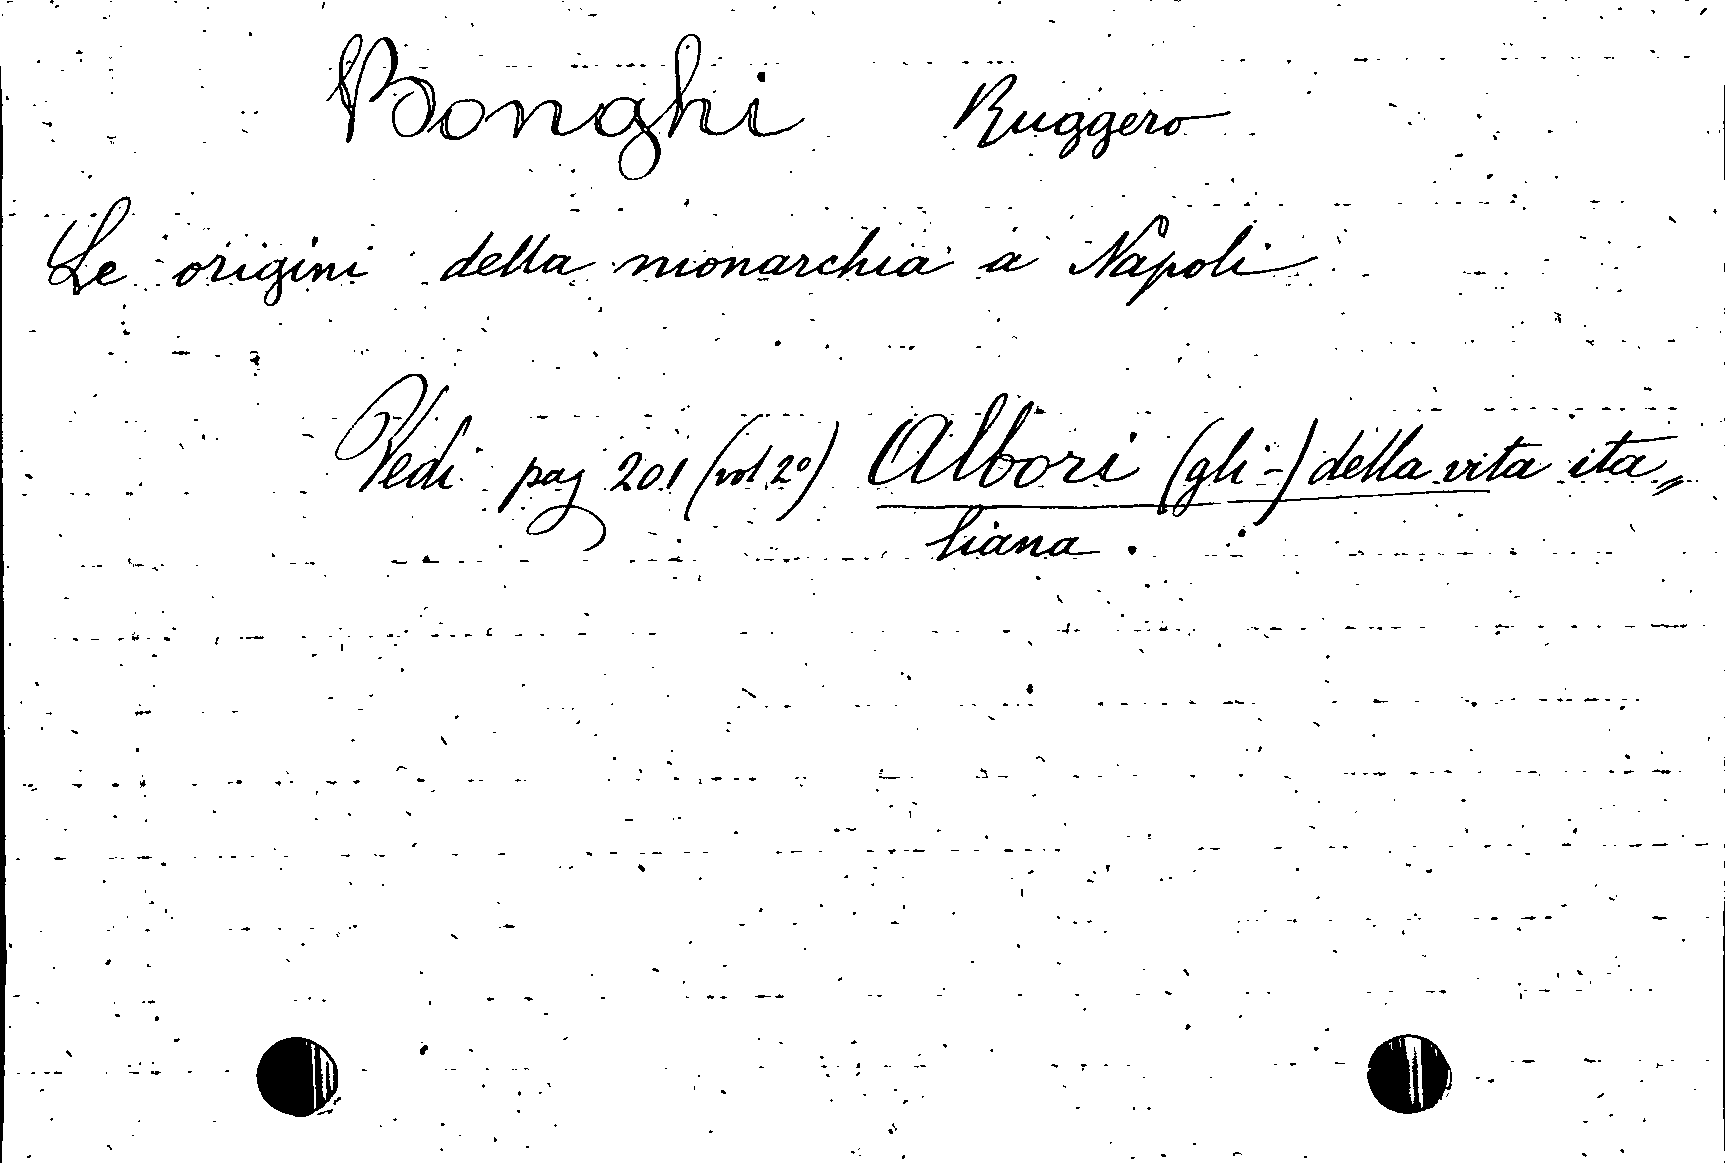 Bonghi Ruggero
Le origini della monarchia a Napoli
Vedi pag 201 (vol 2º) Albori (gli-) della vita ita„
liana.